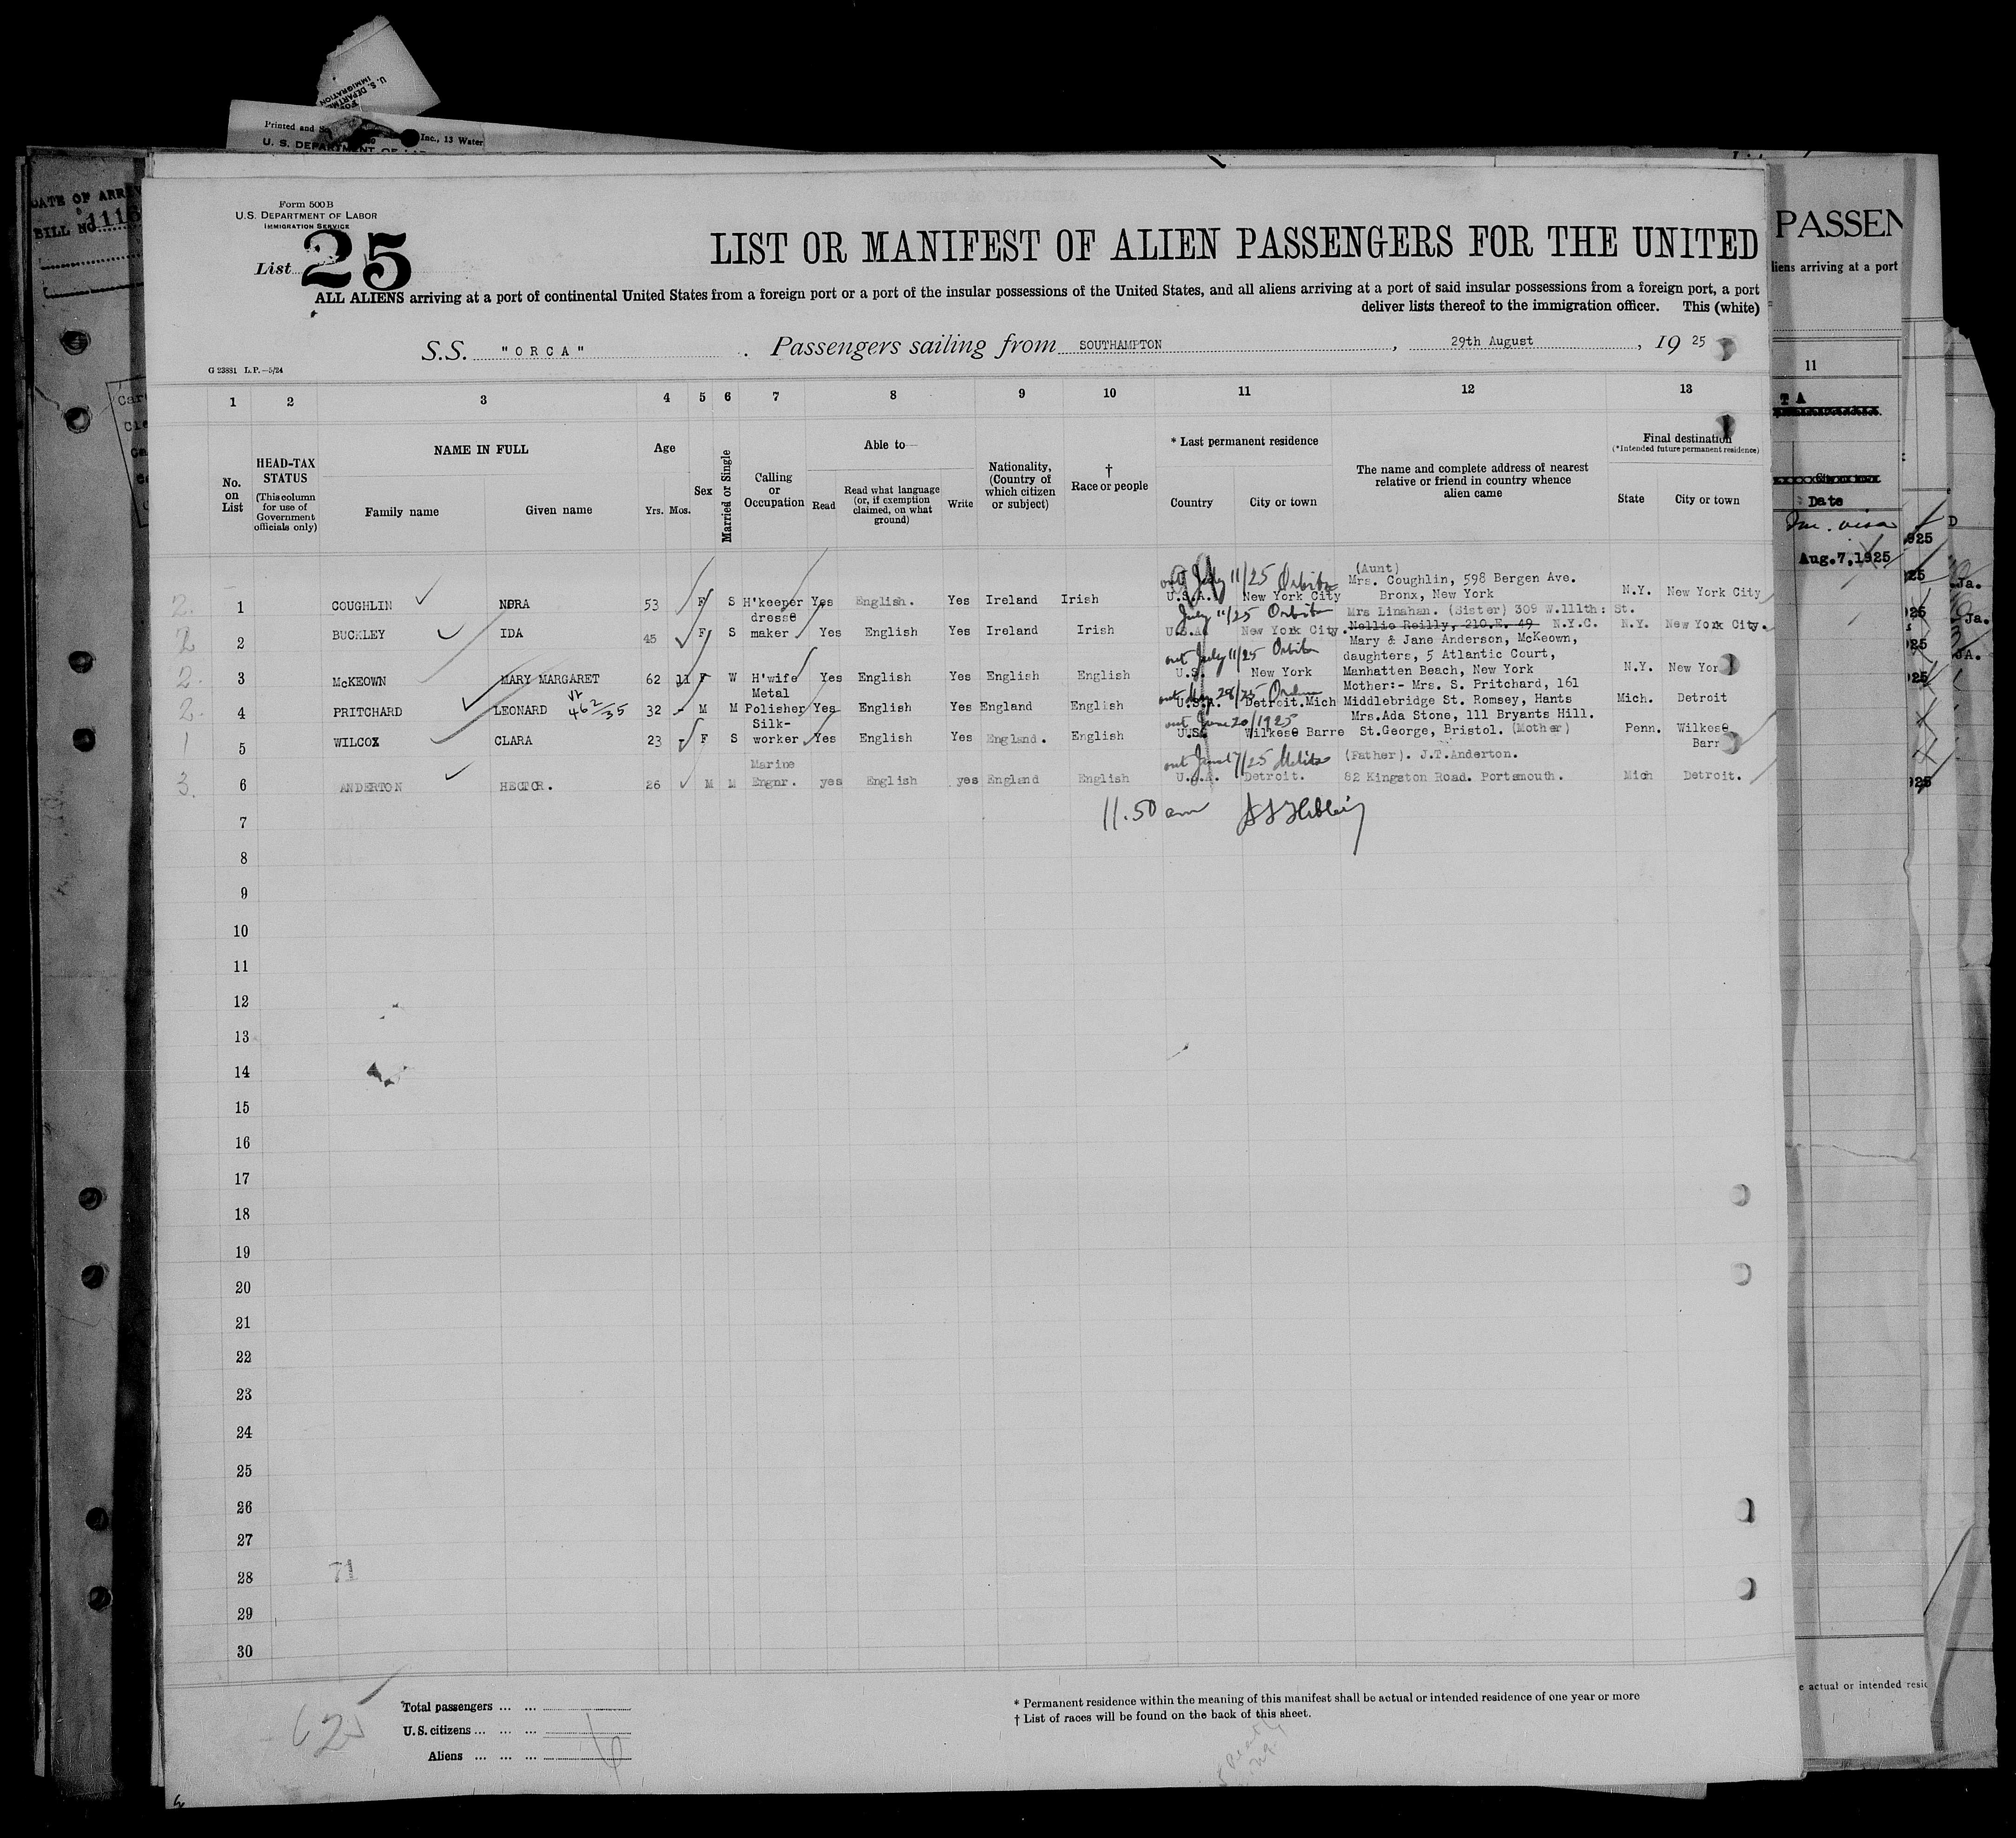 U. S. DEPARTME
IMMIGRATION
Printed and So
Inc., 13 Water
U. S. DEPARTMENT OF LA
DATE OF ARRIV
BILL NO 1116
Form 500B
U.S. DEPARTMENT OF LABOR
IMMIGRATION SERVICE
List 25
LIST OR MANIFEST OF ALIEN PASSENGERS FOR THE UNITED
ALL ALIENS arriving at a port of continental United States from a foreign port or a port of the insular possessions of the United States, and all aliens arriving at a port of said insular possessions from a foreign port, a port
deliver lists thereof to the immigration officer. This (white)
S.S. "ORCA". Passengers sailing from SOUTHAMPTON, 29th August, 19 25
G 23881 L.P.—5/24
1 2 3 4 5 6 7 8 9 10 11 12 13
No. on List
HEAD-TAX STATUS (This column for use of Government officials only)
NAME IN FULL
Family name
Given name
Age
Yrs. Mos.
Sex
Married or Single
Calling or Occupation
Able to—
Read
Read what language (or, if exemption claimed, on what ground)
Write
Nationality, (Country of which citizen or subject)
† Race or people
* Last permanent residence
Country
City or town
The name and complete address of nearest relative or friend in country whence alien came
Final destination (*Intended future permanent residence)
State
City or town
out July 11/25 Orbita (Aunt)
2. 1 COUGHLIN NORA 53 F S H'keeper Yes English. Yes Ireland Irish U.S.A. New York City Mrs. Coughlin, 598 Bergen Ave. Bronx, New York N.Y. New York City
July 11/25 Orbita
2 2 BUCKLEY IDA 45 F S dresse maker Yes English Yes Ireland Irish U.S.A. New York City. Mrs Linahan. (Sister) 309 W.111th: St. Nellie Reilly, 210.E. 49 N.Y.C. N.Y. New York City.
out July 11/25 Orbita
2. 3 McKEOWN MARY MARGARET 62 11 F W H'wife Yes English Yes English English U.S. New York Mary & Jane Anderson, McKeown, daughters, 5 Atlantic Court, Manhatten Beach, New York N.Y. New Yor
462/35
out 28/25 Orduna
2. 4 PRITCHARD LEONARD 32 - M M Metal Polisher Yes English Yes England English U.S.A. Detroit.Mich Mother:- Mrs. S. Pritchard, 161 Middlebridge St. Romsey, Hants Mich. Detroit
out June 20/1925
1 5 WILCOX CLARA 23 - F S Silk-worker Yes English Yes England. English U.S. Wilkese Barre Mrs.Ada Stone, 111 Bryants Hill. St.George, Bristol. (Mother) Penn. Wilkese Barr
out 7/25 Melita
3. 6 ANDERTON HECTOR. 26 M M Marine Engnr. yes English yes England English U.S.A. Detroit. (Father). J.T.Anderton. 82 Kingston Road. Portsmouth. Mich Detroit.
11.50 am
7
8
9
10
11
12
13
14
15
16
17
18
19
20
21
22
23
24
25
26
27
28 71
29
30
Total passengers ... ...
U.S. citizens ... ... ...
Aliens ... ... ... 6
* Permanent residence within the meaning of this manifest shall be actual or intended residence of one year or more
† List of races will be found on the back of this sheet.
PASSEN
liens arriving at a port
11
T A
Date
Aug.7,1925
e actual or intended resid